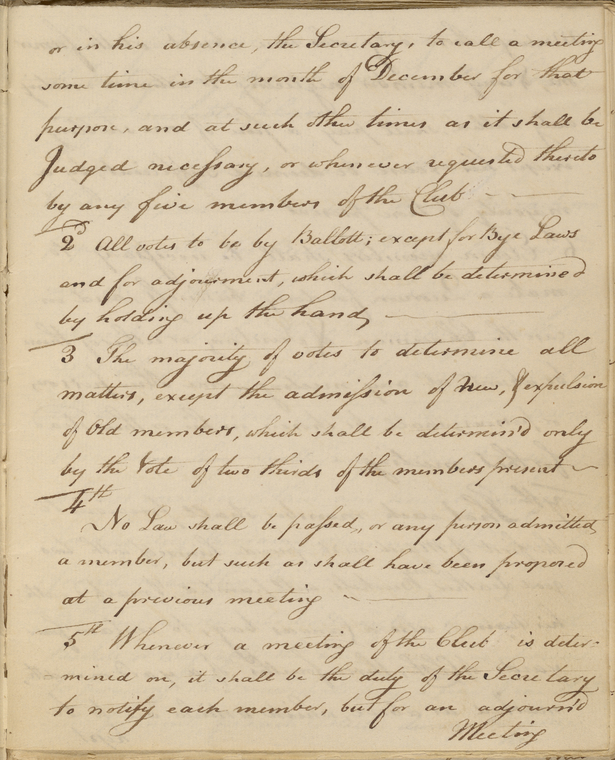 or in his absence, the Secretary, to call a meeting
some time in the month of December for that
purpose, and at such other times as it shall be
Judged necessary, or whenever requested thereto
by any five members of the Club
2d All votes to be by Ballott; except for Bye Laws
and for adjourment, which shall be determined
by holding up the hand,
3 The majority of votes to determine all
matters, except the admission of New, & expulsion
of Old members, which shall be determin'd only
by the Vote of two thirds of the members present
4th
No Law shall be passed, or any person admitted
a member, but such as shall have been proposed
at a previous meeting
5th Whenever a meeting of the Club is deter-
mined on, it shall be the duty of the Secretary
to notify each member, but for an adjourn'd
Meeting